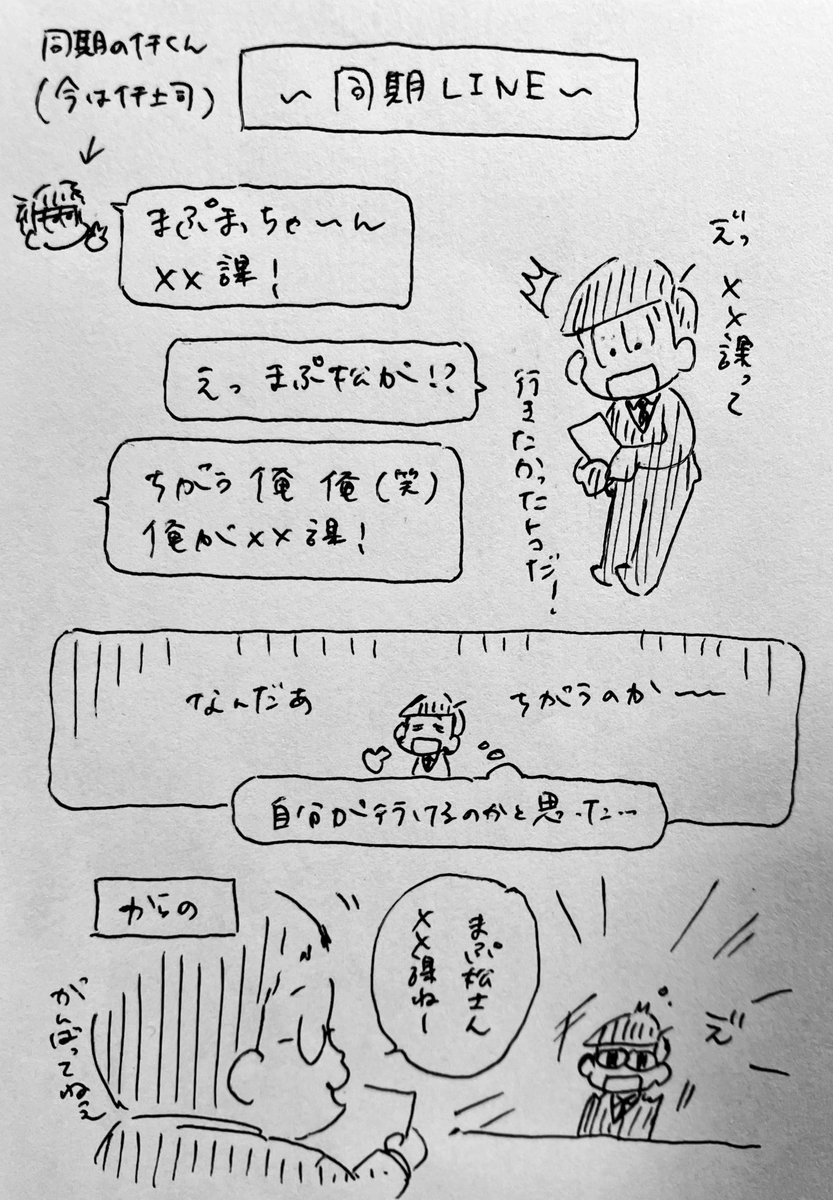 同期の仟くん
(今は仟士司)
～同期LINE～
まぷまっちゃ〜ん
××課！
えっ まぷ松が!?
ちがう 俺 俺(笑)
俺が××課！
えっ
××課って
行きたかったトコだ！
なんだぁ
ちがうのか〜
自分が行けるのかと思った…
からの
がんばってねぇ
まぷ松さん
××課ねー
え゛